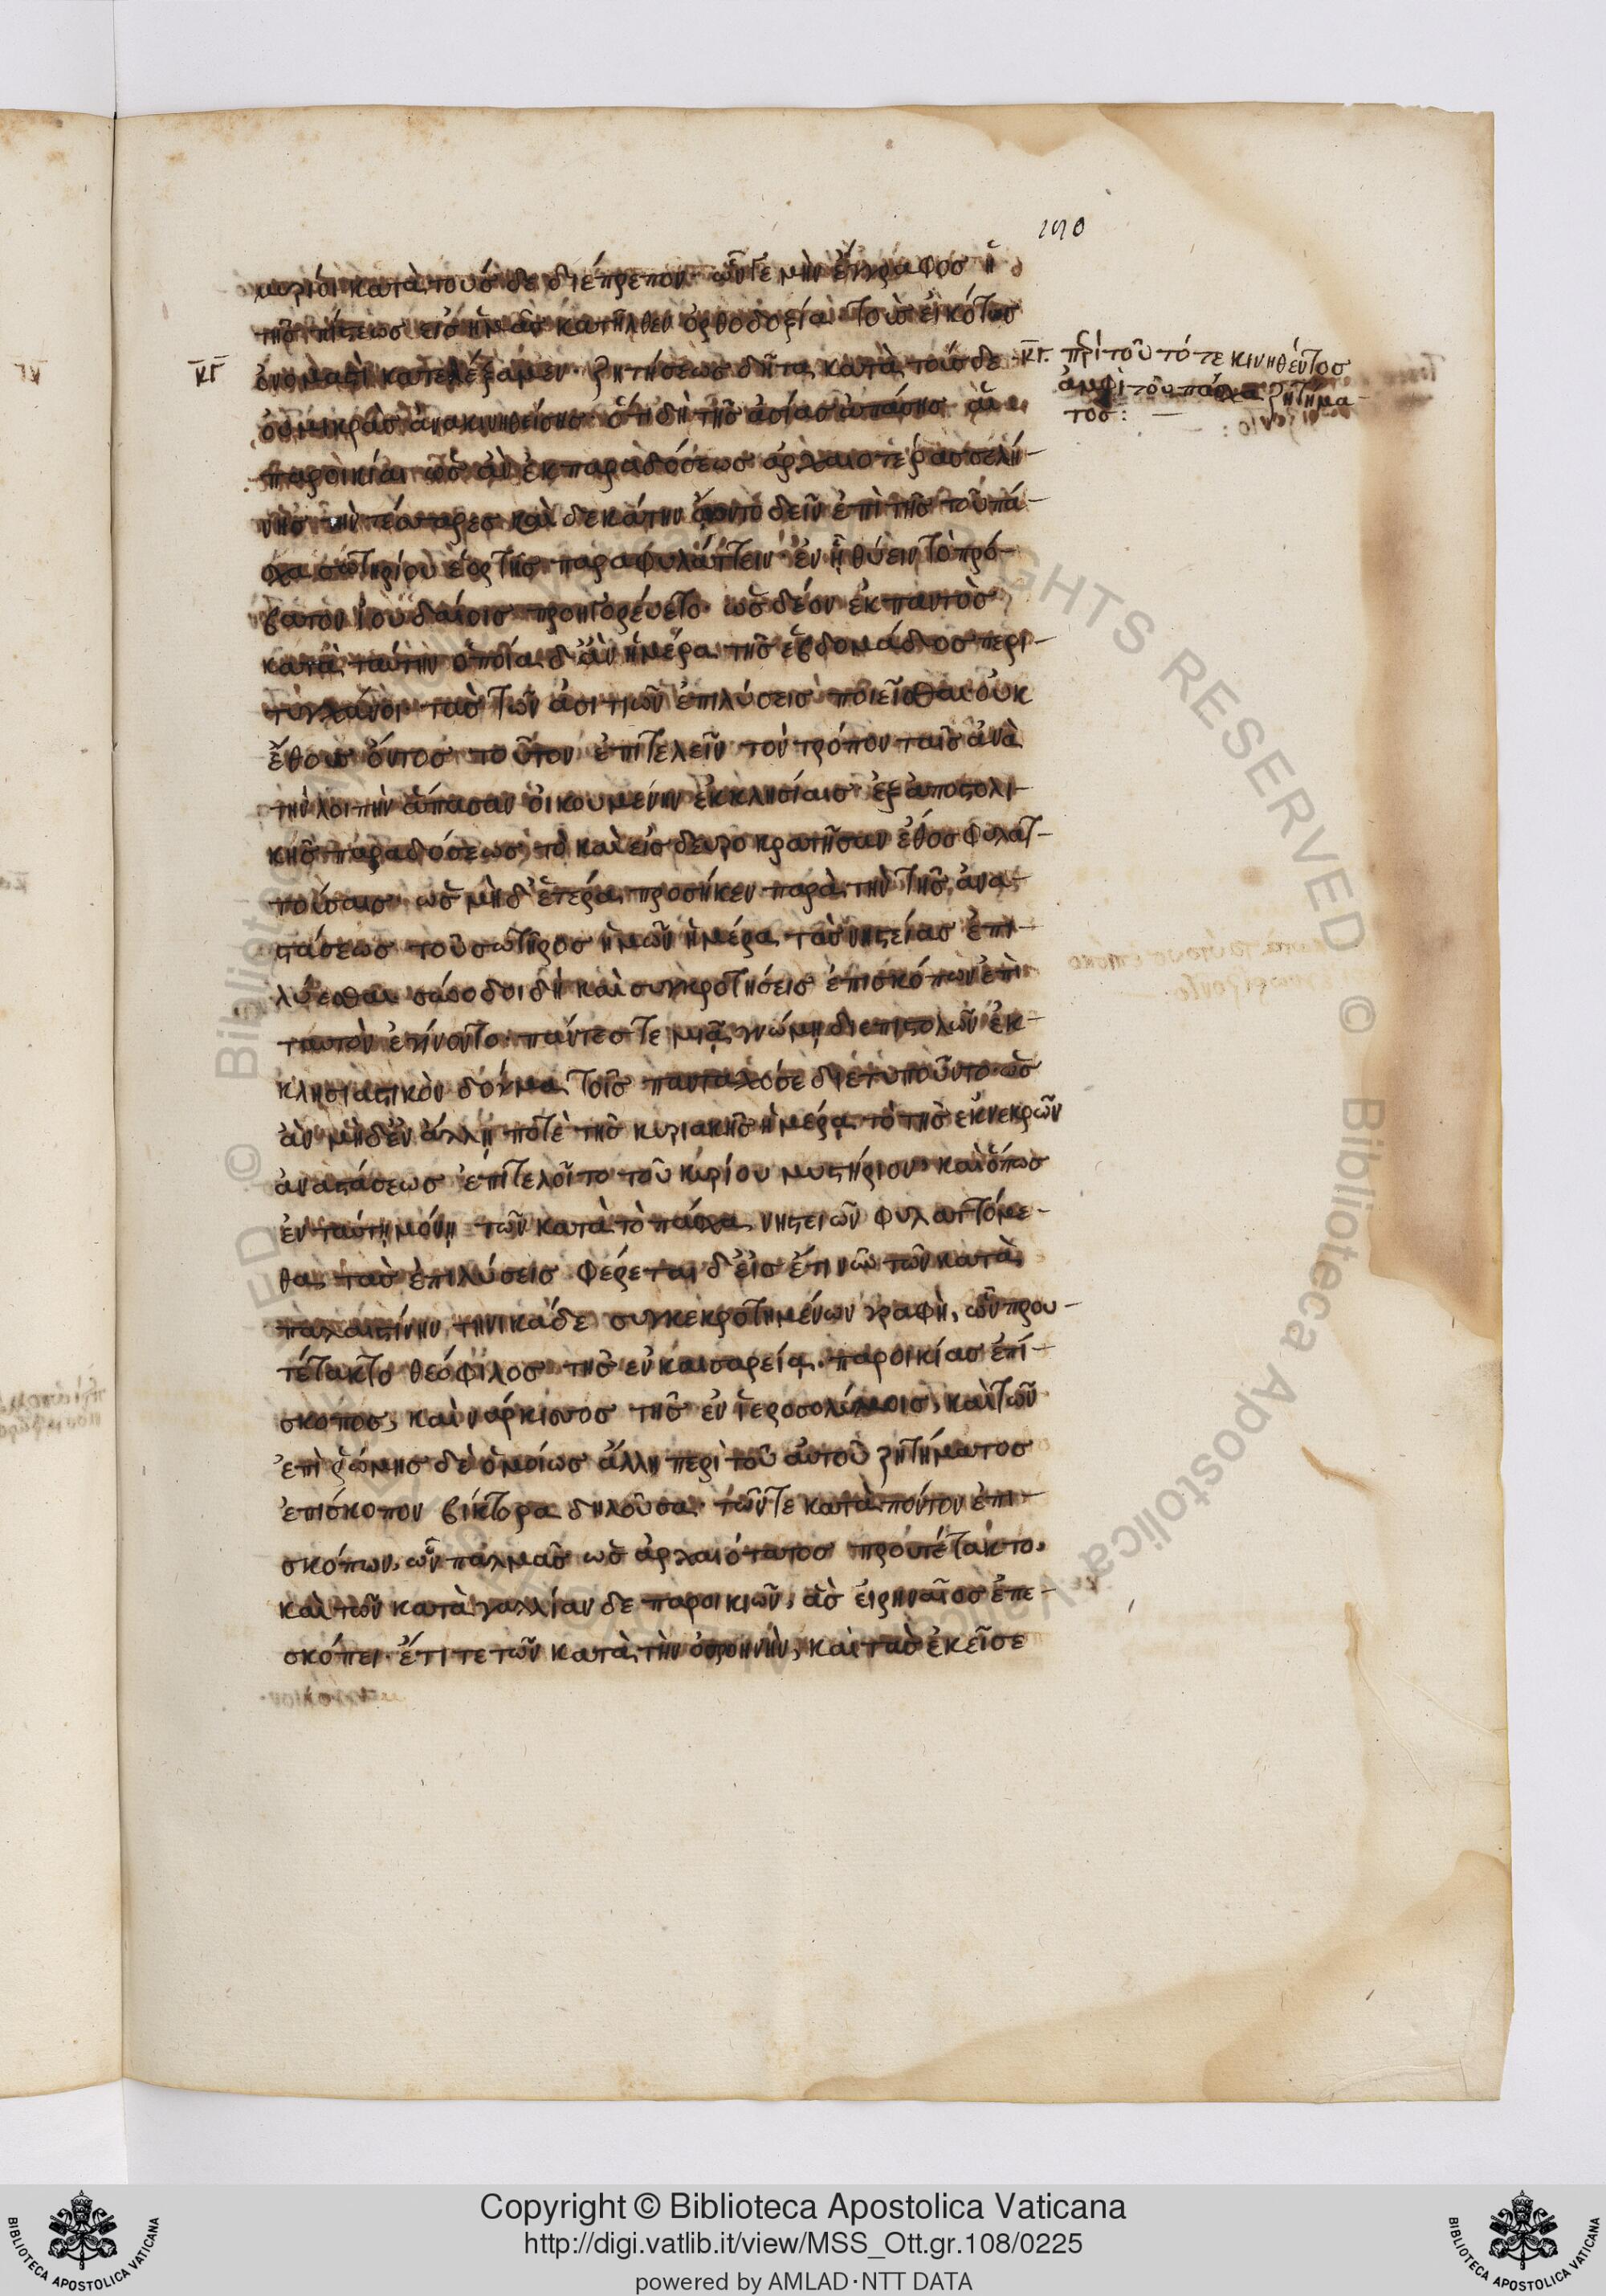 190
μυρίοι κατὰ τούσδε διέπρεπον· ὧν γε μὴν ἔγγραφος ἡ
τῆς πίστεως εἰς ἡμᾶς κατῆλθεν ὀρθοδοξία· τούσ εἰκότως
κγ ὀνομαστὶ κατελέξαμεν· ζητήσεως δῆτα κατὰ τούσδε
κγ. περὶ τοῦ τότε κινηθέντος
ἀμφὶ τοῦ πάσχα ζητήμα-
τος:
οὐ μικρᾶς ἀνακινηθείσης· ὅτι δὴ τῆς ἀσίας ἁπάσης αἱ
παροικίαι ὡς ἂν ἐκ παραδόσεως ἀρχαιοτέρας σελή-
νης τὴν τέσσαρες καὶ δεκάτην ᾤοντο δεῖν ἐπὶ τῆς τοῦ πά-
σχα σωτηρίου ἑορτῆς παραφυλάττειν· ἐν ᾗ θύειν τὸ πρό-
βατον ἰουδαίοις προηγορέυετο· ὡς δέον ἐκ παντὸς
κατὰ ταύτην ὁποία δ' ἂν ἡμέρα τῆς ἑβδομάδος περι-
τυγχάνοι· τὰς τῶν ἀσιτιῶν ἐπιλύσεις ποιεῖσθαι οὐκ
ἔθους ὄντος τοῦτον ἐπιτελεῖν τὸν τρόπον ταῖς ἀνὰ
τὴν λοιπὴν ἅπασαν οἰκουμένην ἐκκλησίαις· ἐξ ἀποστολι-
κῆς παραδόσεως, τὸ καὶ εἰς δεῦρο κρατῆσαν ἔθος φυλατ-
τούσαις· ὡς μὴ δ' ἑτέρα προσήκειν παρὰ τὴν τῆς ἀνα-
στάσεως τοῦ σωτῆρος ἡμῶν ἡμέρα τὰς νηστείας ἐπι-
λύεσθαι σύνοδοι δὴ καὶ συγκροτήσεις ἐπισκόπων ἐπὶ
ταυτὸν ἐγίνοντο· πάντες τε μιᾷ γνώμῃ δι ἐπιστολῶν ἐκ-
κλησιαστικὸν δόγμα τοῖς πανταχόσε διετυποῦντο· ὡς
ἂν μηδὲν ἄλλῃ ποτὲ τῆς κυριακῆς ἡμέρᾳ τὸ τῆς ἐκ νεκρῶν
ἀναστάσεως ἐπιτελοῖτο τοῦ κυρίου μυστήριον· καὶ ὅπως
ἐν ταύτῃ μόνῃ τῶν κατὰ τὸ πάσχα νηστειῶν φυλαττόμε-
θα τὰς ἐπιλύσεις· φέρεται δ' εἰς ἔτι νῦν τῶν κατὰ
παλαιστίνην τηνικάδε συγκεκροτημένων γραφὴ, ὧν πρου-
τέτακτο θεόφιλος τῆς ἐν καισαρείᾳ παροικίας ἐπί-
σκοπος, καὶ νάρκισσος τῆς ἐν ἱεροσολύμοις, καὶ τῶν
ἐπὶ ῥώμης δὲ ὁμοίως ἄλλη περὶ τοῦ αὐτοῦ ζητήματος
ἐπίσκοπον βίκτορα δηλοῦσα· τῶν τε κατὰ πόντον ἐπι-
σκόπων, ὧν πάλμας ὡς ἀρχαιότατος προὐτέτακτο,
καὶ τῶν κατὰ γαλλίαν δε παροικιῶν, ἃς εἰρηναῖος ἐπε-
σκόπει· ἔτι τε τῶν κατὰ τὴν ὀσροηνὴν, καὶ τὰς ἐκεῖσε
Copyright © Biblioteca Apostolica Vaticana
http://digi.vatlib.it/view/MSS_Ott.gr.108/0225
powered by AMLAD·NTT DATA
BIBLIOTECA APOSTOLICA VATICANA
BIBLIOTECA APOSTOLICA VATICANA